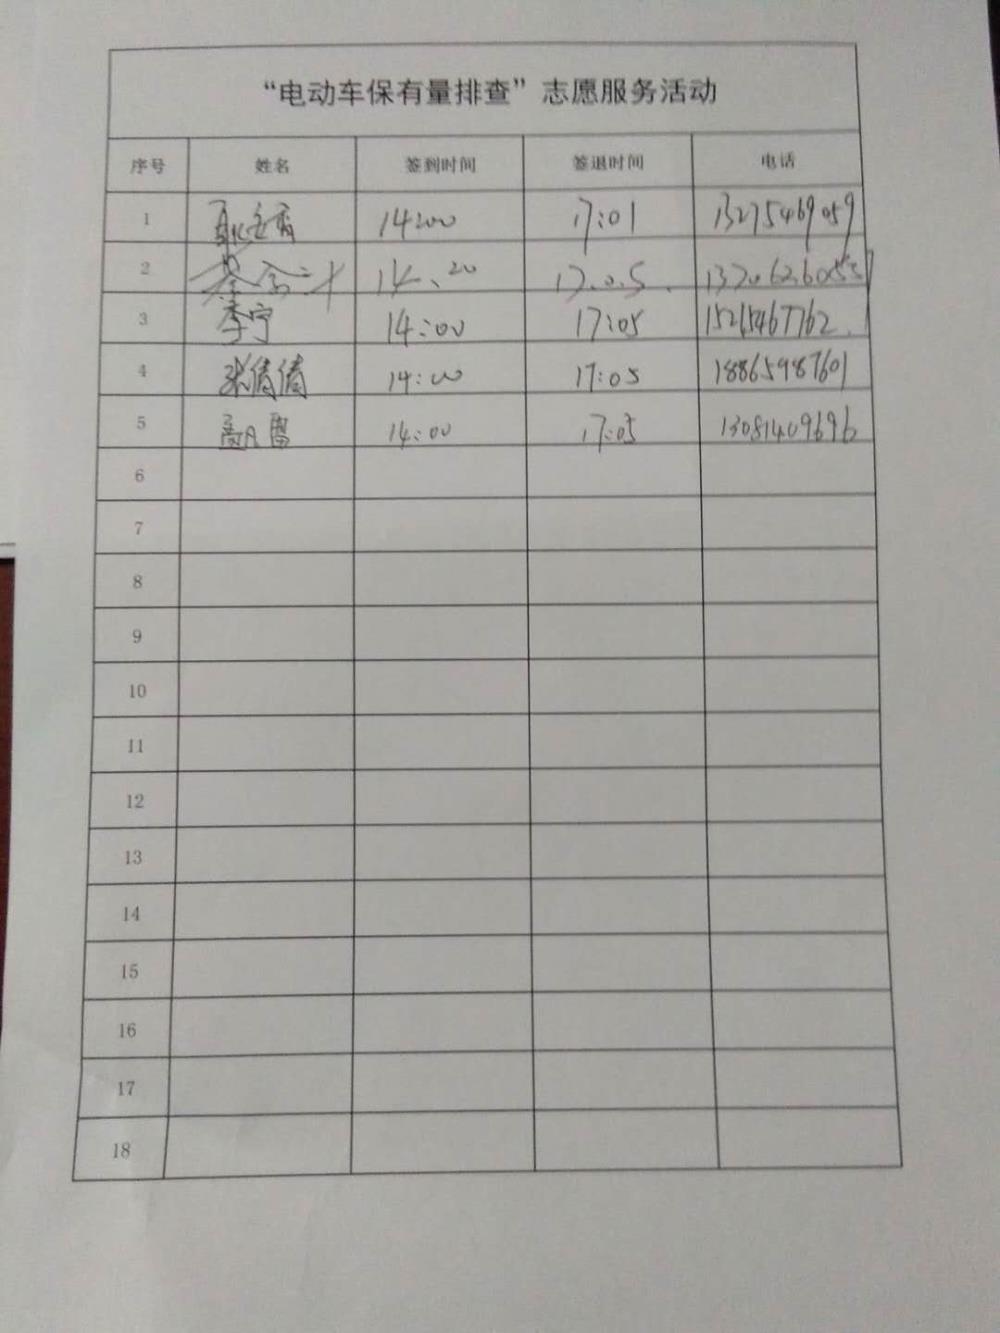 “电动车保有量排查”志愿服务活动
序号 姓名 签到时间 签退时间 电话
1 14:00 17:01 13275469059
2 14:20 17:05
3 李宁 14:00 17:05 15215467762
4 张倩倩 14:00 17:05 18865987601
5 14:00 17:05 13081409696
6
7
8
9
10
11
12
13
14
15
16
17
18